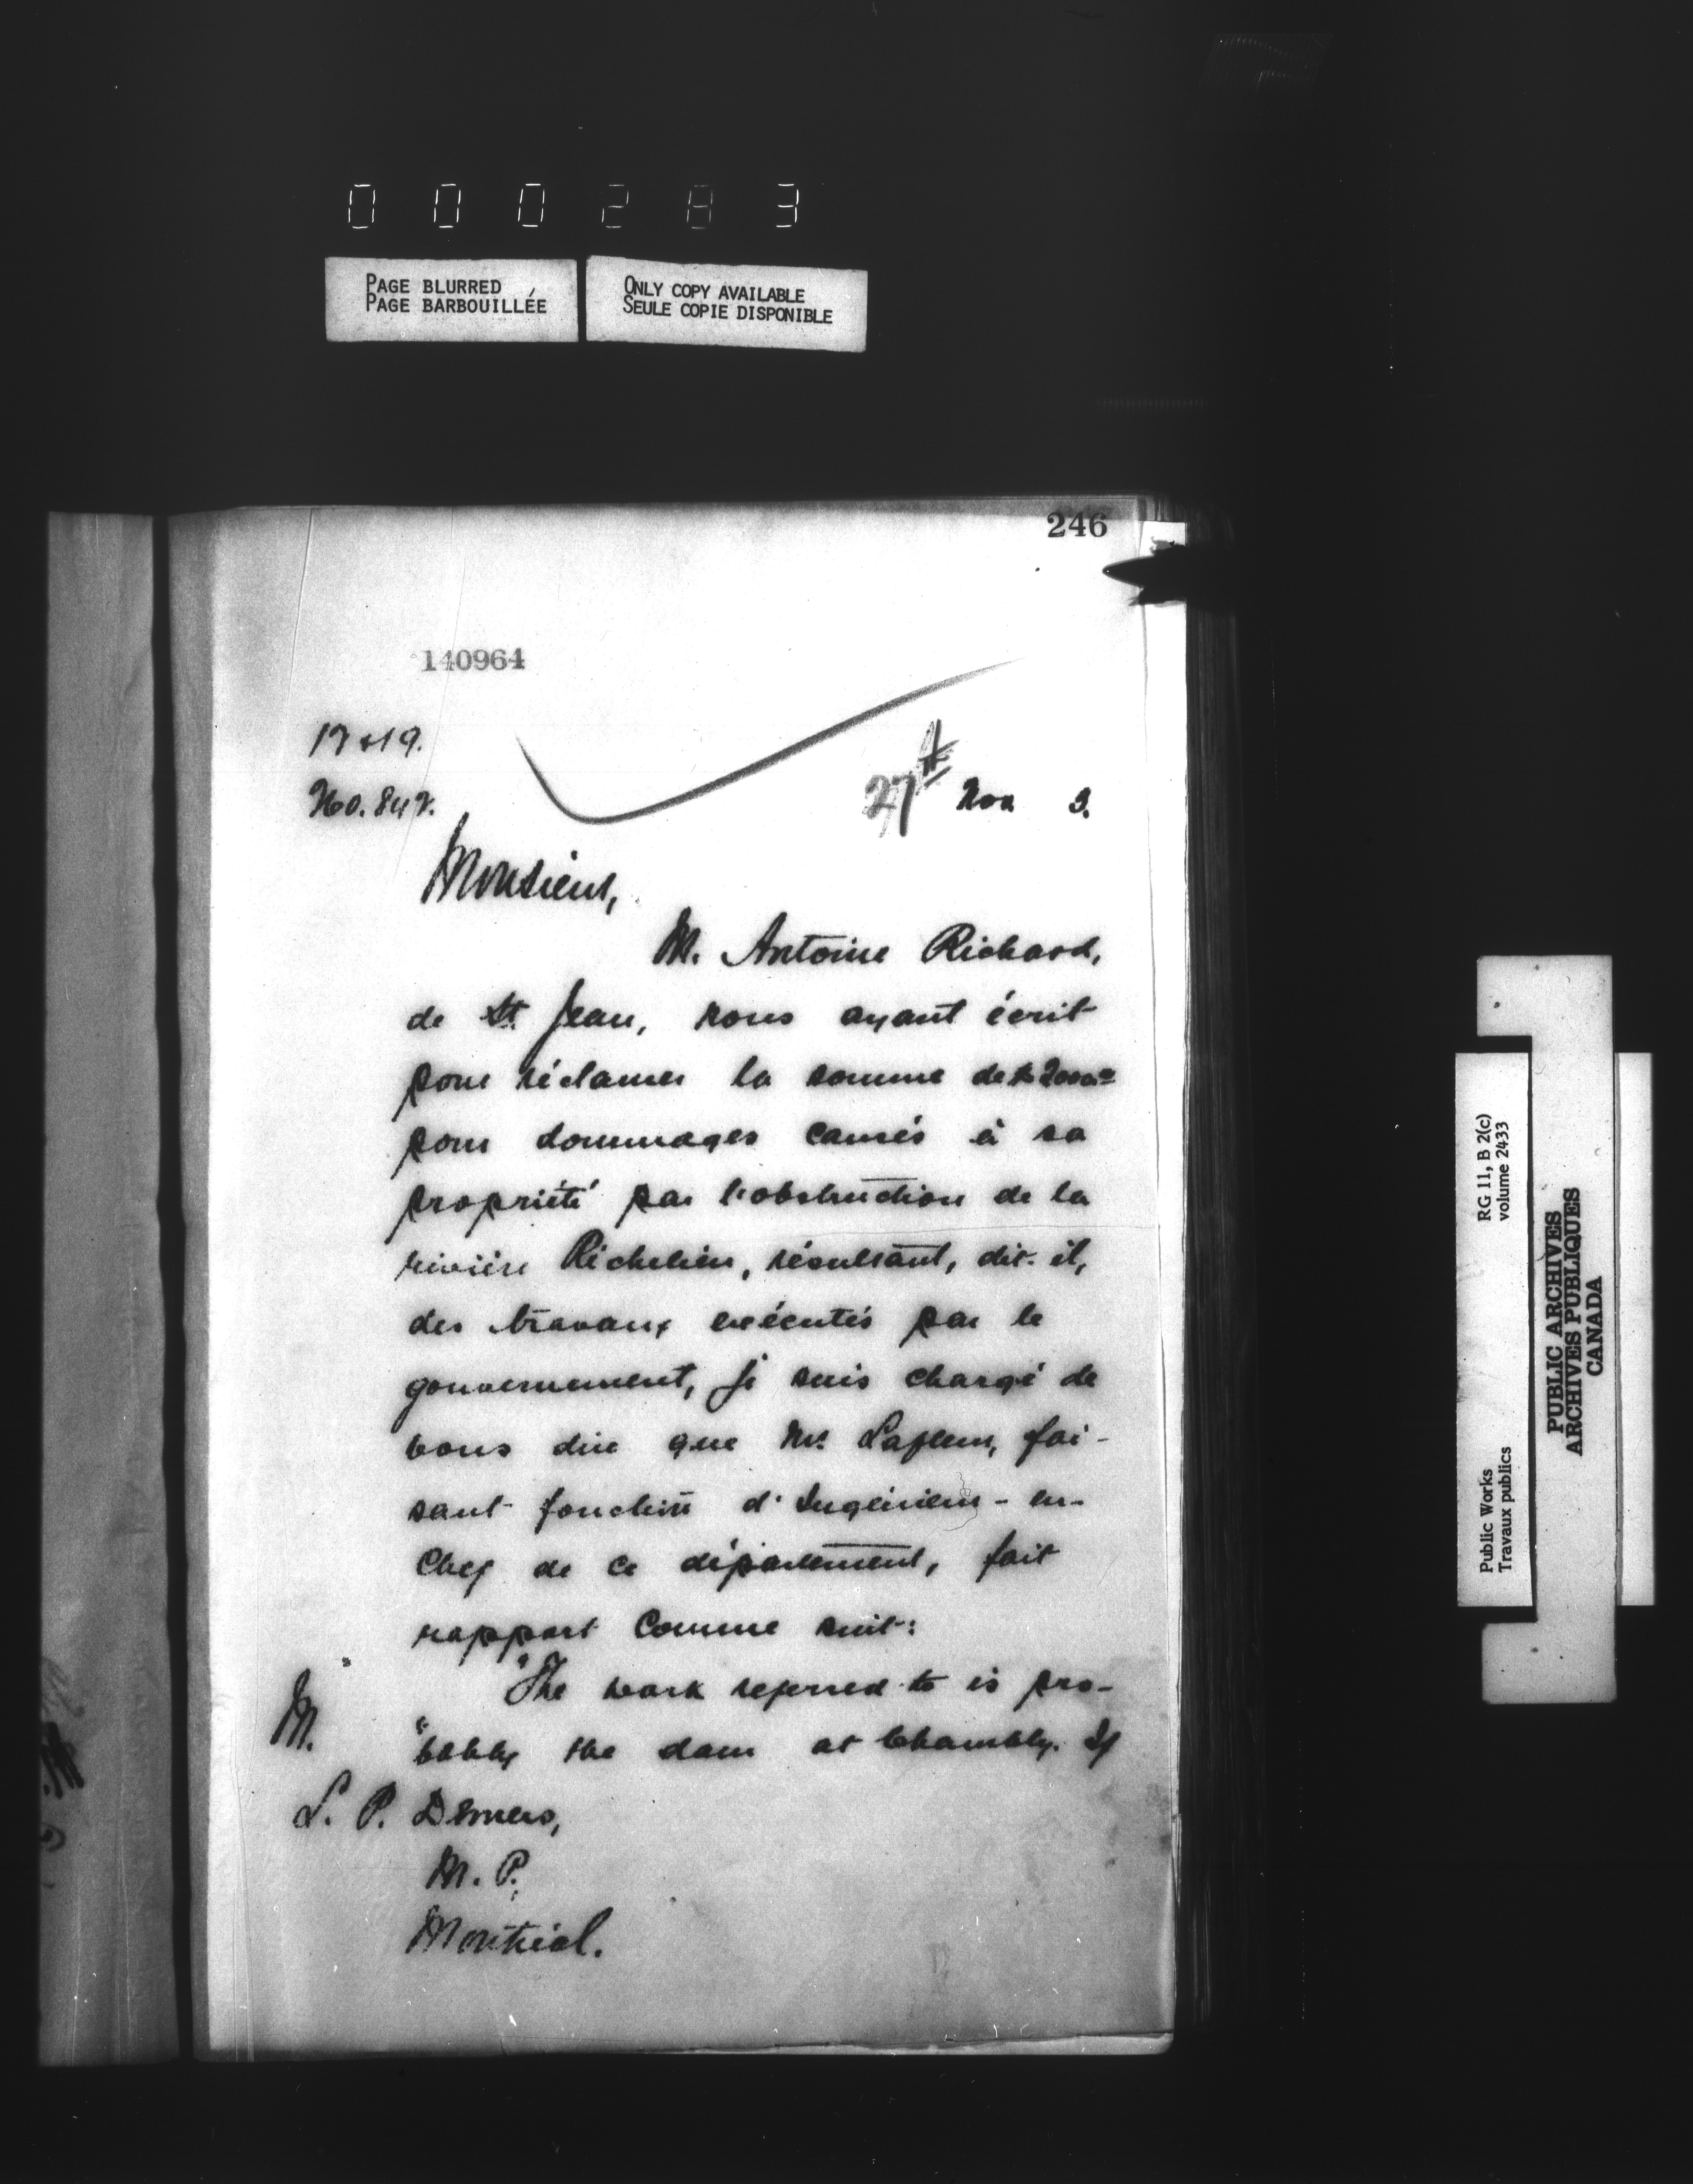 000283
PAGE BLURRED
PAGE BARBOUILLÉE
ONLY COPY AVAILABLE
SEULE COPIE DISPONIBLE
246
140964
27th Nov 3.
Monsieur,
M. Antoine Richard,
de St Jean, nous ayant écrit
pour réclamer la somme de
pour dommages causés à sa
propriété par l'obstruction de la
rivière Richelieu, résultant, dit-il,
des travaux exécutés par le
gouvernement, je suis chargé de
vous dire que Mr. fai-
sant fonction d'Ingénieur-en-
Chef de ce département, fait
rapport comme suit:
"The work referred to is pro-
"bably the dam at Chambly. If
M.
L. P. Demers,
M. P.,
Montréal.
Public Works
Travaux publics
RG 11, B 2(c)
volume 2433
PUBLIC ARCHIVES
ARCHIVES PUBLIQUES
CANADA